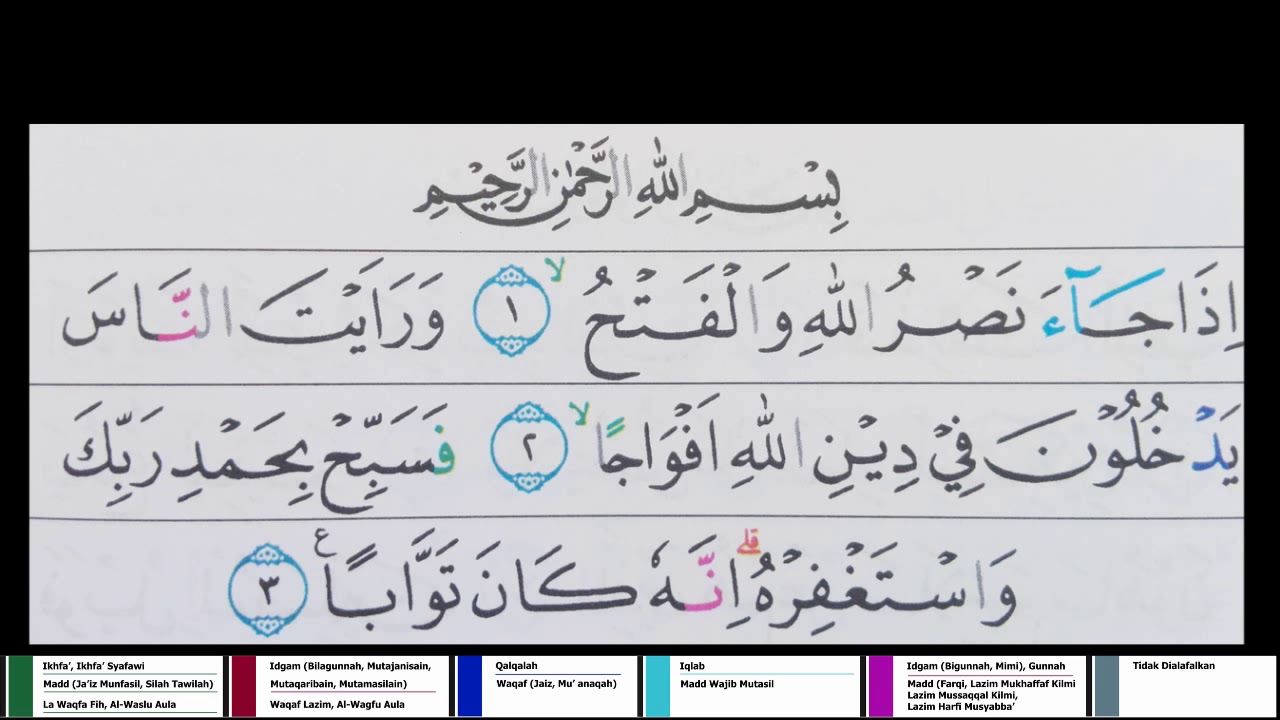 بِسْمِ اللهِ الرَّحْمٰنِ الرَّحِيْمِ
اِذَا جَاۤءَ نَصْرُ اللهِ وَالْفَتْحُ ۙ ١ وَرَاَيْتَ النَّاسَ
يَدْخُلُوْنَ فِيْ دِيْنِ اللهِ اَفْوَاجًا ۙ ٢ فَسَبِّحْ بِحَمْدِ رَبِّكَ
وَاسْتَغْفِرْهُ ۗ اِنَّهٗ كَانَ تَوَّابًا ع ٣
Ikhfa’, Ikhfa’ Syafawi
Madd (Ja’iz Munfasil, Silah Tawilah)
La Waqfa Fih, Al-Waslu Aula
Idgam (Bilagunnah, Mutajanisain,
Mutaqaribain, Mutamasilain)
Waqaf Lazim, Al-Wagfu Aula
Qalqalah
Waqaf (Jaiz, Mu’ anaqah)
Iqlab
Madd Wajib Mutasil
Idgam (Bigunnah, Mimi), Gunnah
Madd (Farqi, Lazim Mukhaffaf Kilmi
Lazim Mussaqqal Kilmi,
Lazim Harfi Musyabba’
Tidak Dialafalkan